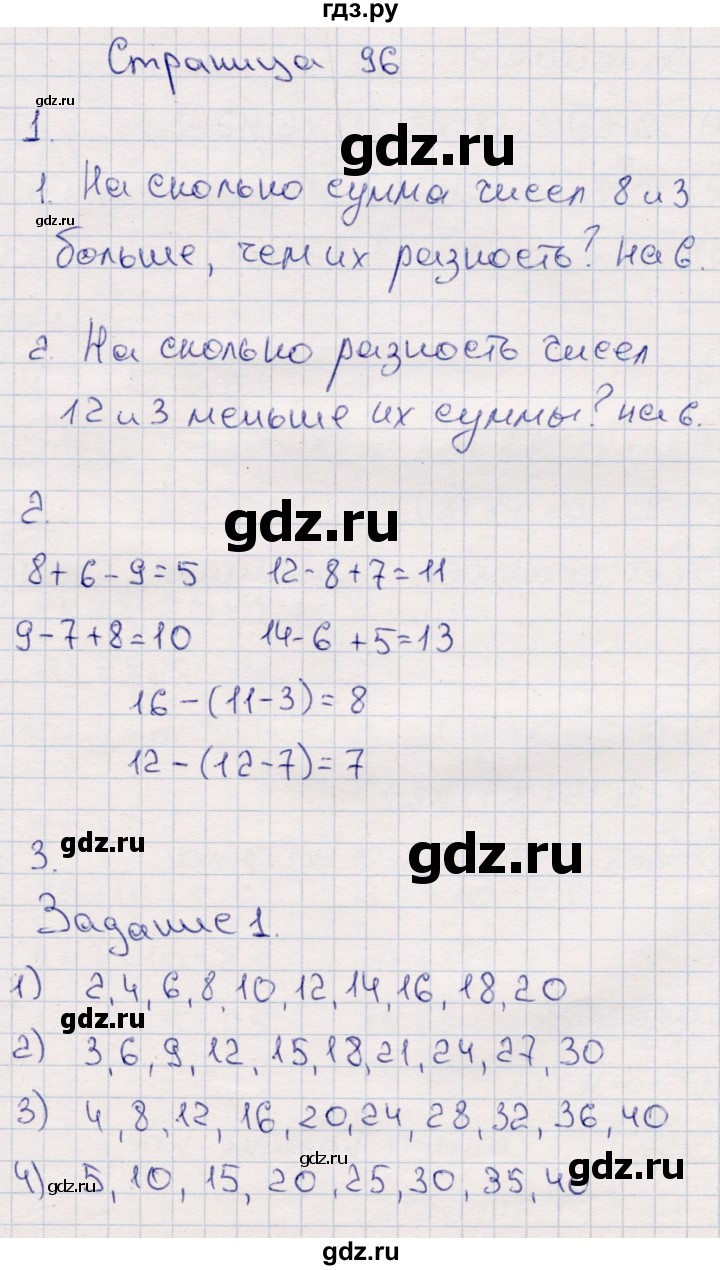 гдз.ру
Страница 96
gdz.ru
1.
gdz.ru
1. На сколько сумма чисел 8 и 3
gdz.ru
больше, чем их разность? на 6.
2. На сколько разность чисел
12 и 3 меньше их суммы? на 6.
2.
gdz.ru
8+6-9=5 12-8+7=11
9-7+8=10 14-6+5=13
16-(11-3)=8
12-(12-7)=7
3.
gdz.ru
gdz.ru
Задание 1.
1) 2,4,6,8,10,12,14,16,18,20
gdz.ru
2) 3,6,9,12,15,18,21,24,27,30
3) 4,8,12,16,20,24,28,32,36,40
4) 5,10,15,20,25,30,35,40
gdz.ru
gdz.ru
gdz.ru
gdz.ru